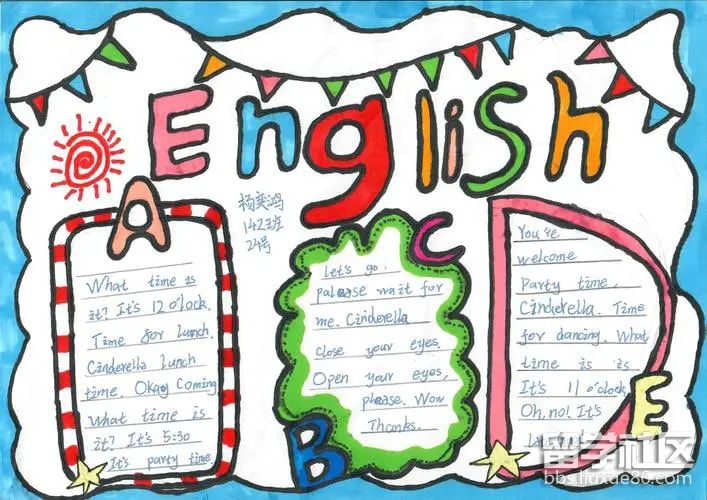 English
杨奕鸿
142班
24号
A
What time is
it? It's 12 o'lock.
Time for lunch.
Cinderella lunch
time. Okay Coming
What time is
it? It's 5:30
It's party time
B
C
Let's go.
palease wait for
me. Cinderella
close your eyes.
Open your eyes,
please. Wow
Thanks.
D
You're
welcome
Party time,
Cinderella. Time
for dancing. What
time is is
It's 11 o'clock
Oh, no! It's
E
留学社区
bbs.liuxue86.com